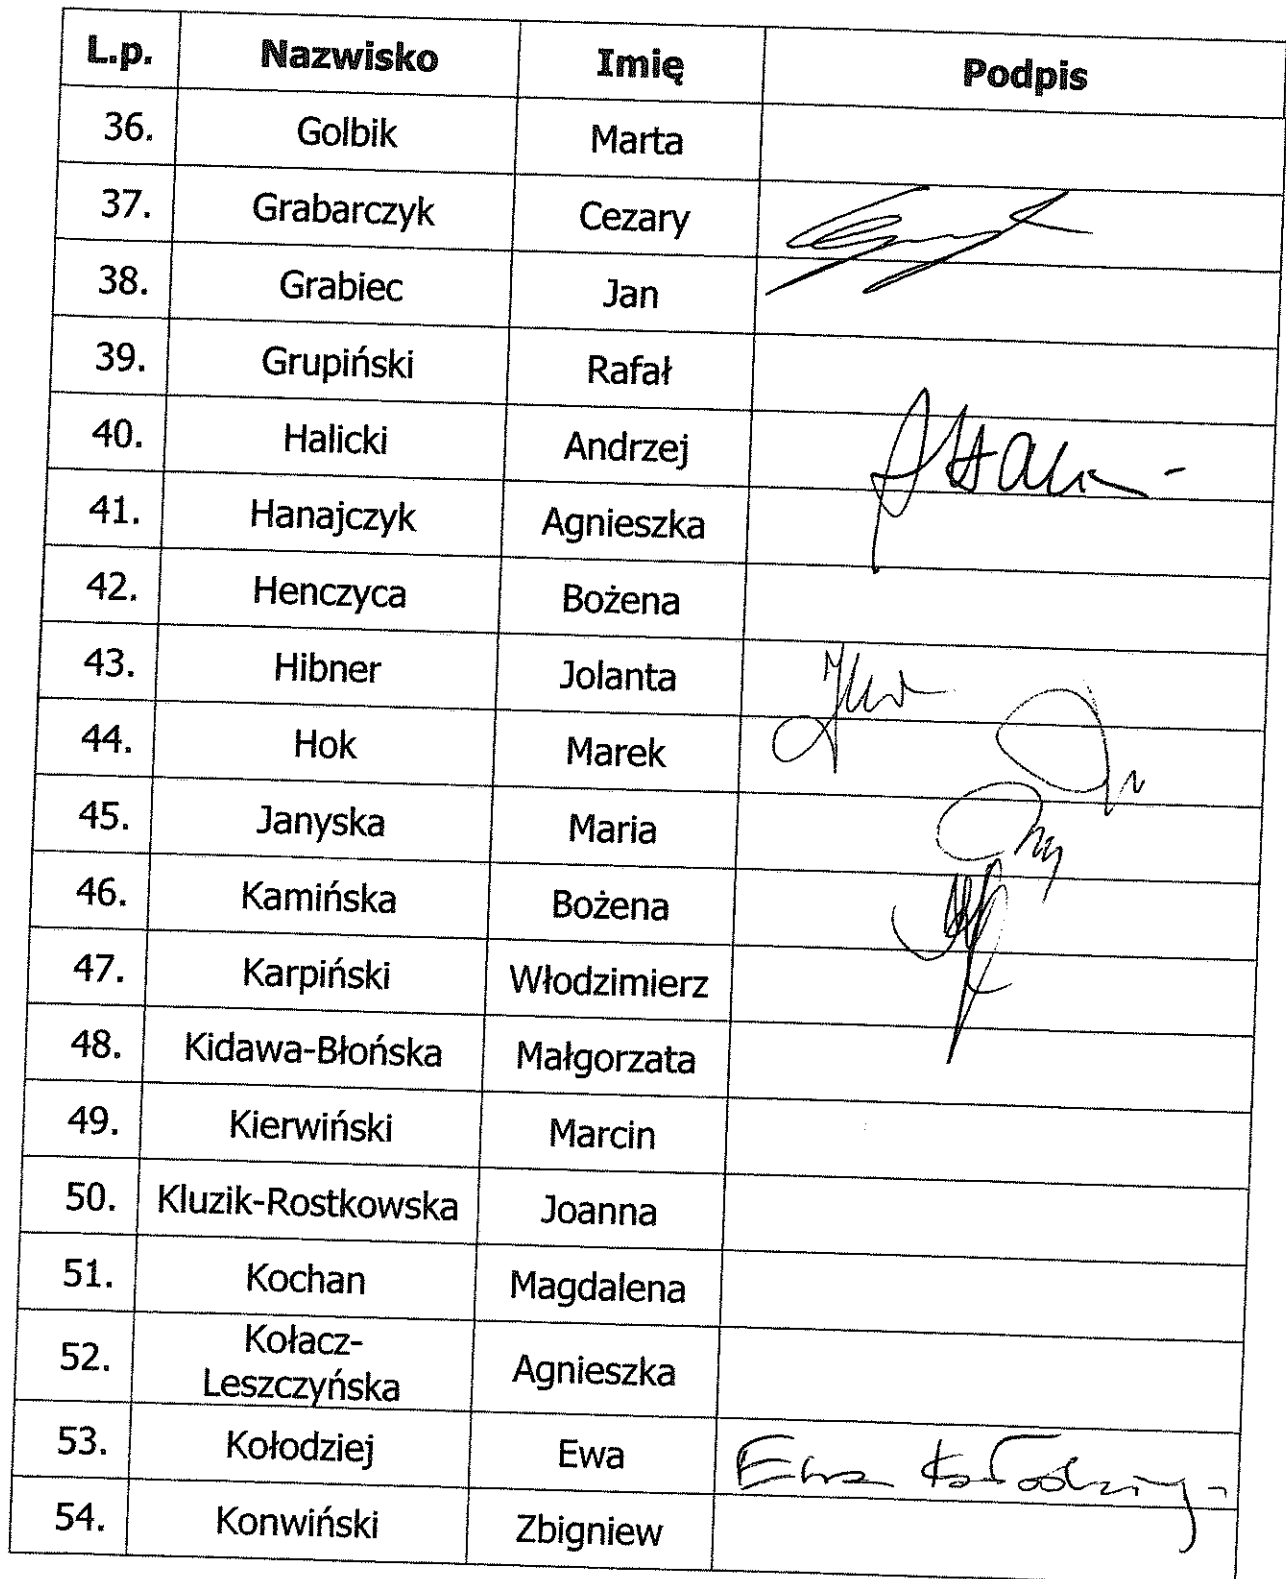 L.p. Nazwisko Imię Podpis
36. Golbik Marta
37. Grabarczyk Cezary
38. Grabiec Jan
39. Grupiński Rafał
40. Halicki Andrzej
41. Hanajczyk Agnieszka
42. Henczyca Bożena
43. Hibner Jolanta
44. Hok Marek
45. Janyska Maria
46. Kamińska Bożena
47. Karpiński Włodzimierz
48. Kidawa-Błońska Małgorzata
49. Kierwiński Marcin
50. Kluzik-Rostkowska Joanna
51. Kochan Magdalena
52. Kołacz-
Leszczyńska Agnieszka
53. Kołodziej Ewa Ewa Kołodziej
54. Konwiński Zbigniew